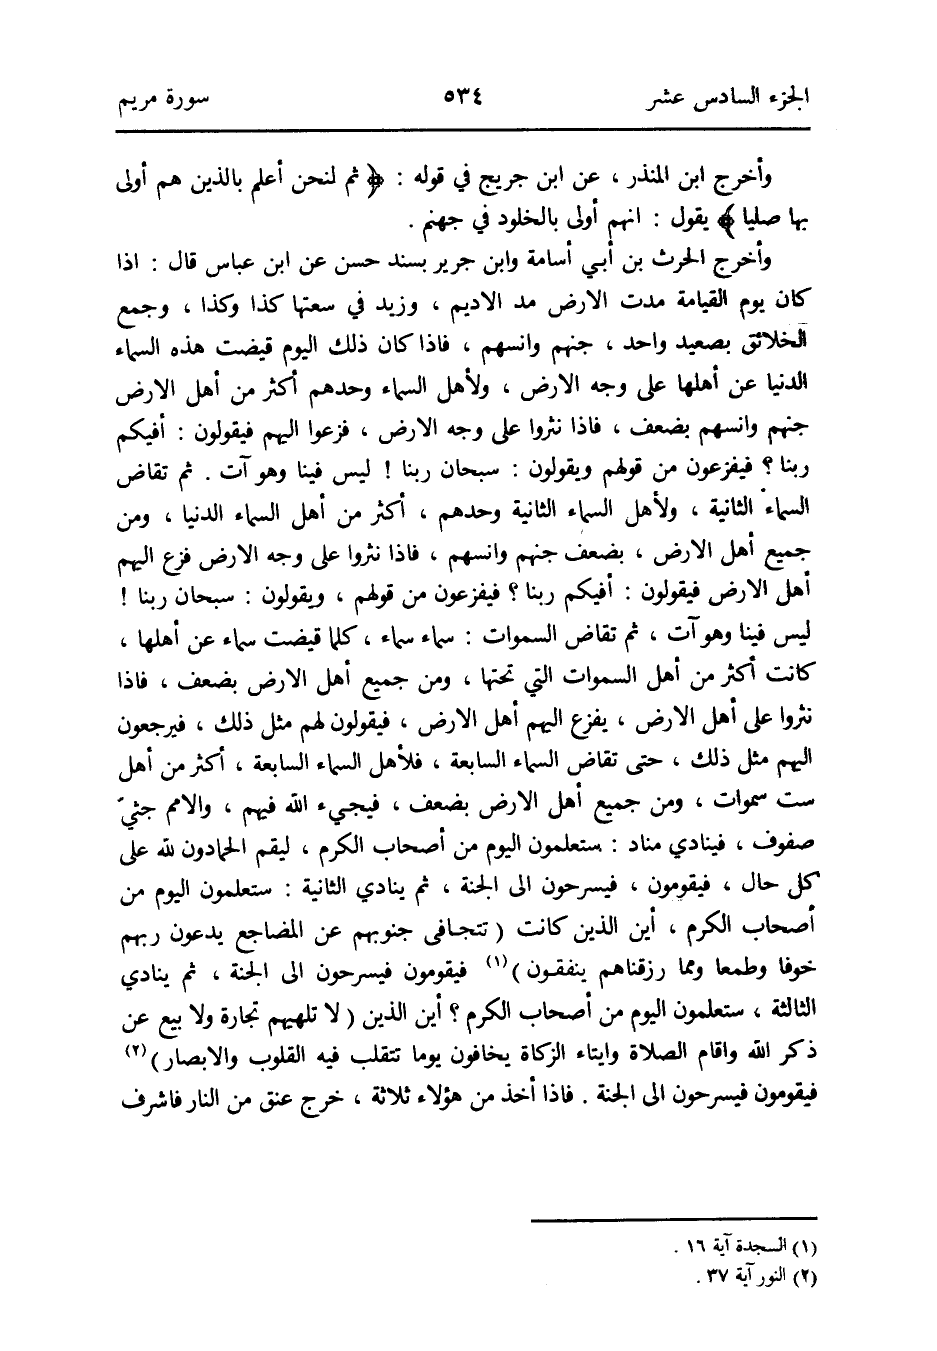 الجزء السادس عشر ٥٣٤ سورة مريم
وأخرج ابن المنذر ، عن ابن جريج في قوله : ﴿ ثم لنحن أعلم بالذين هم أولى
بها صليا ﴾ يقول : انهم أولى بالخلود في جهنم .
وأخرج الحرث بن أبي أسامة وابن جرير بسند حسن عن ابن عباس قال : اذا
كان يوم القيامة مدت الارض مد الاديم ، وزيد في سعتها كذا وكذا ، وجمع
الخلائق بصعيد واحد ، جنهم وانسهم ، فاذا كان ذلك اليوم قيضت هذه السماء
الدنيا عن أهلها على وجه الارض ، ولأهل السماء وحدهم أكثر من أهل الارض
جنهم وانسهم بضعف ، فاذا نثروا على وجه الارض ، فزعوا اليهم فيقولون : أفيكم
ربنا ؟ فيفزعون من قولهم ويقولون : سبحان ربنا ! ليس فينا وهو آت . ثم تقاض
السماء الثانية ، ولأهل السماء الثانية وحدهم ، أكثر من أهل السماء الدنيا ، ومن
جميع أهل الارض ، بضعف جنهم وانسهم ، فاذا نثروا على وجه الارض فزع اليهم
أهل الارض فيقولون : أفيكم ربنا ؟ فيفزعون من قولهم ، ويقولون : سبحان ربنا !
ليس فينا وهو آت ، ثم تقاض السموات : سماء سماء ، كلما قيضت سماء عن أهلها ،
كانت أكثر من أهل السموات التي تحتها ، ومن جميع أهل الارض بضعف ، فاذا
نثروا على أهل الارض ، يفزع اليهم أهل الارض ، فيقولون لهم مثل ذلك ، فيرجعون
اليهم مثل ذلك ، حتى تقاض السماء السابعة ، فلأهل السماء السابعة ، أكثر من أهل
ست سموات ، ومن جميع أهل الارض بضعف ، فيجيء الله فيهم ، والامم جثيّ
صفوف ، فينادي مناد : ستعلمون اليوم من أصحاب الكرم ، ليقم الحمادون لله على
كل حال ، فيقومون ، فيسرحون الى الجنة ، ثم ينادي الثانية : ستعلمون اليوم من
أصحاب الكرم ، أين الذين كانت ( تتجافى جنوبهم عن المضاجع يدعون ربهم
خوفا وطمعا ومما رزقناهم ينفقون )(١) فيقومون فيسرحون الى الجنة ، ثم ينادي
الثالثة ، ستعلمون اليوم من أصحاب الكرم ؟ أين الذين ( لا تلهيهم تجارة ولا بيع عن
ذكر الله واقام الصلاة وايتاء الزكاة يخافون يوما تتقلب فيه القلوب والابصار )(٢)
فيقومون فيسرحون الى الجنة . فاذا أخذ من هؤلاء ثلاثة ، خرج عنق من النار فاشرف
(١) السجدة آية ١٦ .
(٢) النور آية ٣٧ .